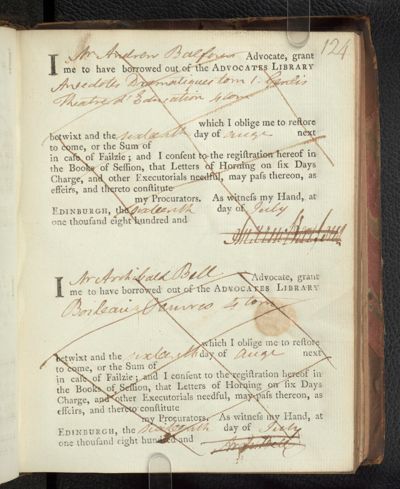 124
I Mr Andrew Balfour Advocate, grant
me to have borrowed out of the ADVOCATES LIBRARY
Anecdotes Dramatiques tom 1. Genlis
Theatre d'Education 4 tom
which I oblige me to reſtore
betwixt and the sixteenth day of auge next
to come, or the Sum of
in caſe of Failzie; and I conſent to the regiſtration hereof in
the Books of Seſſion, that Letters of Horning on ſix Days
Charge, and other Executorials needful, may paſs thereon, as
effeirs, and thereto conſtitute
my Procurators. As witneſs my Hand, at
EDINBURGH, the sixteenth day of July
one thouſand eight hundred and
I Mr Archibald Bell Advocate, grant
me to have borrowed out of the ADVOCATES LIBRARY
Oeuvres 4 tom
which I oblige me to reſtore
betwixt and the sixteenth day of auge next
to come, or the Sum of
in caſe of Failzie; and I conſent to the regiſtration hereof in
the Books of Seſſion, that Letters of Horning on ſix Days
Charge, and other Executorials needful, may paſs thereon, as
effeirs, and thereto conſtitute
my Procurators. As witneſs my Hand, at
EDINBURGH, the sixteenth day of July
one thouſand eight hundred and
Bell